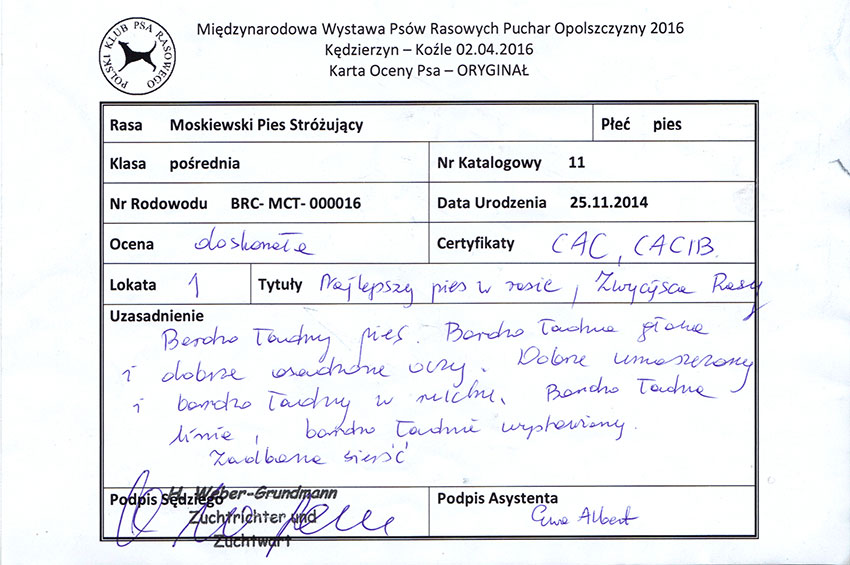 POLSKI KLUB PSA RASOWEGO
Międzynarodowa Wystawa Psów Rasowych Puchar Opolszczyzny 2016
Kędzierzyn – Koźle 02.04.2016
Karta Oceny Psa – ORYGINAŁ
Rasa Moskiewski Pies Stróżujący Płeć pies
Klasa pośrednia Nr Katalogowy 11
Nr Rodowodu BRC- MCT- 000016 Data Urodzenia 25.11.2014
Ocena doskonała Certyfikaty CAC, CACIB.
Lokata 1 Tytuły Najlepszy pies w rasie, Zwycięsca Rasy
Uzasadnienie
Bardzo ładny pies. Bardzo ładna głowa
i dobrze osadzone oczy. Dobrze umaszczony
i bardzo ładny w ruchu. Bardzo ładna
linia, bardzo ładnie wystawiony.
Zadbana sierść
Podpis Sędziego H. Weber-Grundmann Podpis Asystenta
Zuchtrichter und Ewa Albert
Zuchtwart